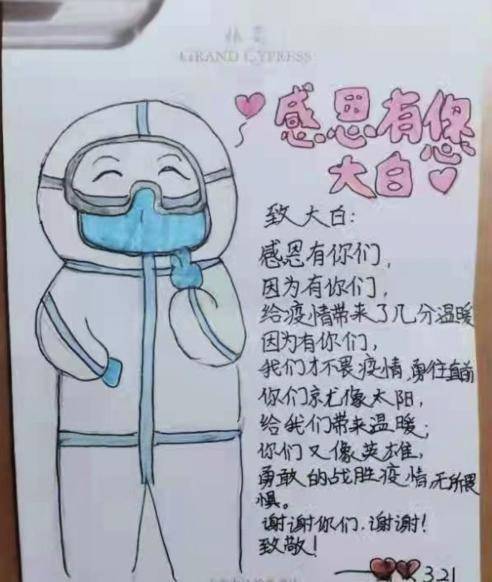 GRAND CYPRESS
感恩有您
大白
致大白:
感恩有你们,
因为有你们,
给疫情带来了几分温暖
因为有你们,
我们才不畏疫情,勇往直前
你们就像太阳,
给我们带来温暖;
你们又像英雄,
勇敢的战胜疫情,无所畏
惧。
谢谢你们.谢谢!
致敬!
3.21